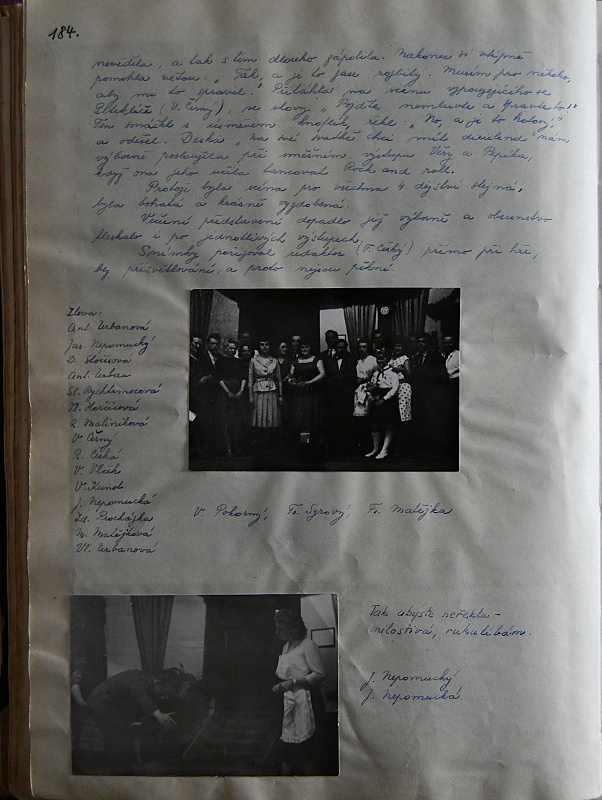 184.
nevěděla, a tak s tím dlouho zápolila. Nakonec si vtipně
pomohla větou: „Tak, a je to zase rozbitý. Musím pro někoho,
aby mi to spravil." Přitáhla na scénu vzpouzejícího se
(V. Černý), se slovy „Pojďte, nemluvte a spravte to!"
Ten smáčkl s úsměvem knoflík, řekl: „No, a je to hotový!"
a odešel. Deska „Na své svatbě chci mít dixieland" nám
výborně posloužila při směšném výstupu Věry a Pepíka,
když ona jeho učila tancovat Rock and roll.
byla scéna pro všechna 4 dějství stejná,
byla bohatá a krásně vyzdobená.
Večerní představení dopadlo již výborně a obecenstvo
tleskalo i po jednotlivých výstupech.
Snímky pořizoval redaktor (V. Český) přímo při hře,
bez přisvětlování, a proto nejsou pěkné.
Zleva:
Ant. Urbanová
Jar. Nepomucký
Ant. Urban
St. Rychtmocová
Vl. Horčicová
R. Maliníková
V. Černý
R. Císká
V. Vlčík
V. Kunda
J. Nepomucká
Zd. Procházka
M. Matějková
Vl. Urbanová
V. Pokorný, Fr. Syrový, Fr. Matějka
Tak abyste neřekla -
milostivá, rukulíbám.
J. Nepomucký
J. Nepomucká